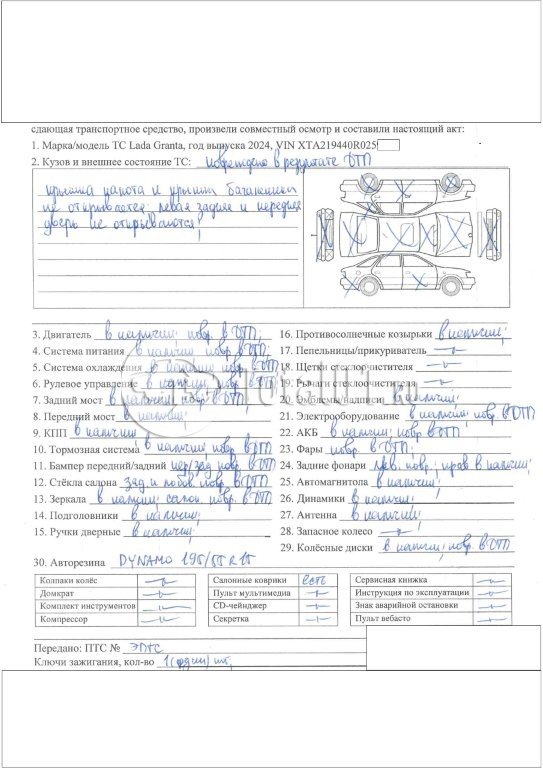 сдающая транспортное средство, произвели совместный осмотр и составили настоящий акт:
1. Марка/модель ТС Lada Granta, год выпуска 2024, VIN XTA219440R025
2. Кузов и внешнее состояние ТС: повреждено в результате ДТП
крышка капота и крышка багажника
не открывается; левая задняя и передняя
дверь не открываются!
3. Двигатель в наличии; повр. в ДТП;
4. Система питания в наличии повр в ДТП;
5. Система охлаждения в наличии повр в ДТП;
6. Рулевое управление в наличии, повр в ДТП;
7. Задний мост в наличии повр в ДТП;
8. Передний мост в наличии;
9. КПП в наличии
10. Тормозная система в наличии повр в ДТП
11. Бампер передний/задний пер/зад повр в ДТП
12. Стёкла салона зад и лобов. повр в ДТП
13. Зеркала в наличии; салон. повр. в ДТП
14. Подголовники в наличии;
15. Ручки дверные в наличии;
16. Противосолнечные козырьки в наличии;
17. Пепельницы/прикуриватель –
18. Щетки стеклоочистителя –
19. Рычаги стеклоочистителя –
20. Эмблемы/надписи в наличии;
21. Электрооборудование в наличии; повр. в ДТП
22. АКБ в наличии; повр в ДТП
23. Фары повр. в ДТП;
24. Задние фонари лев. повр; прав в наличии;
25. Автомагнитола в наличии;
26. Динамики в наличии;
27. Антенна в наличии;
28. Запасное колесо –
29. Колёсные диски в наличии; повр. в ДТП
30. Авторезина DYNAMO 195/55 R15
Колпаки колёс –
Домкрат –
Комплект инструментов –
Компрессор –
Салонные коврики есть
Пульт мультимедиа –
CD-чейнджер –
Секретка –
Сервисная книжка –
Инструкция по эксплуатации –
Знак аварийной остановки –
Пульт вебасто –
Передано: ПТС № ЭПТС
Ключи зажигания, кол-во 1 (один) шт,